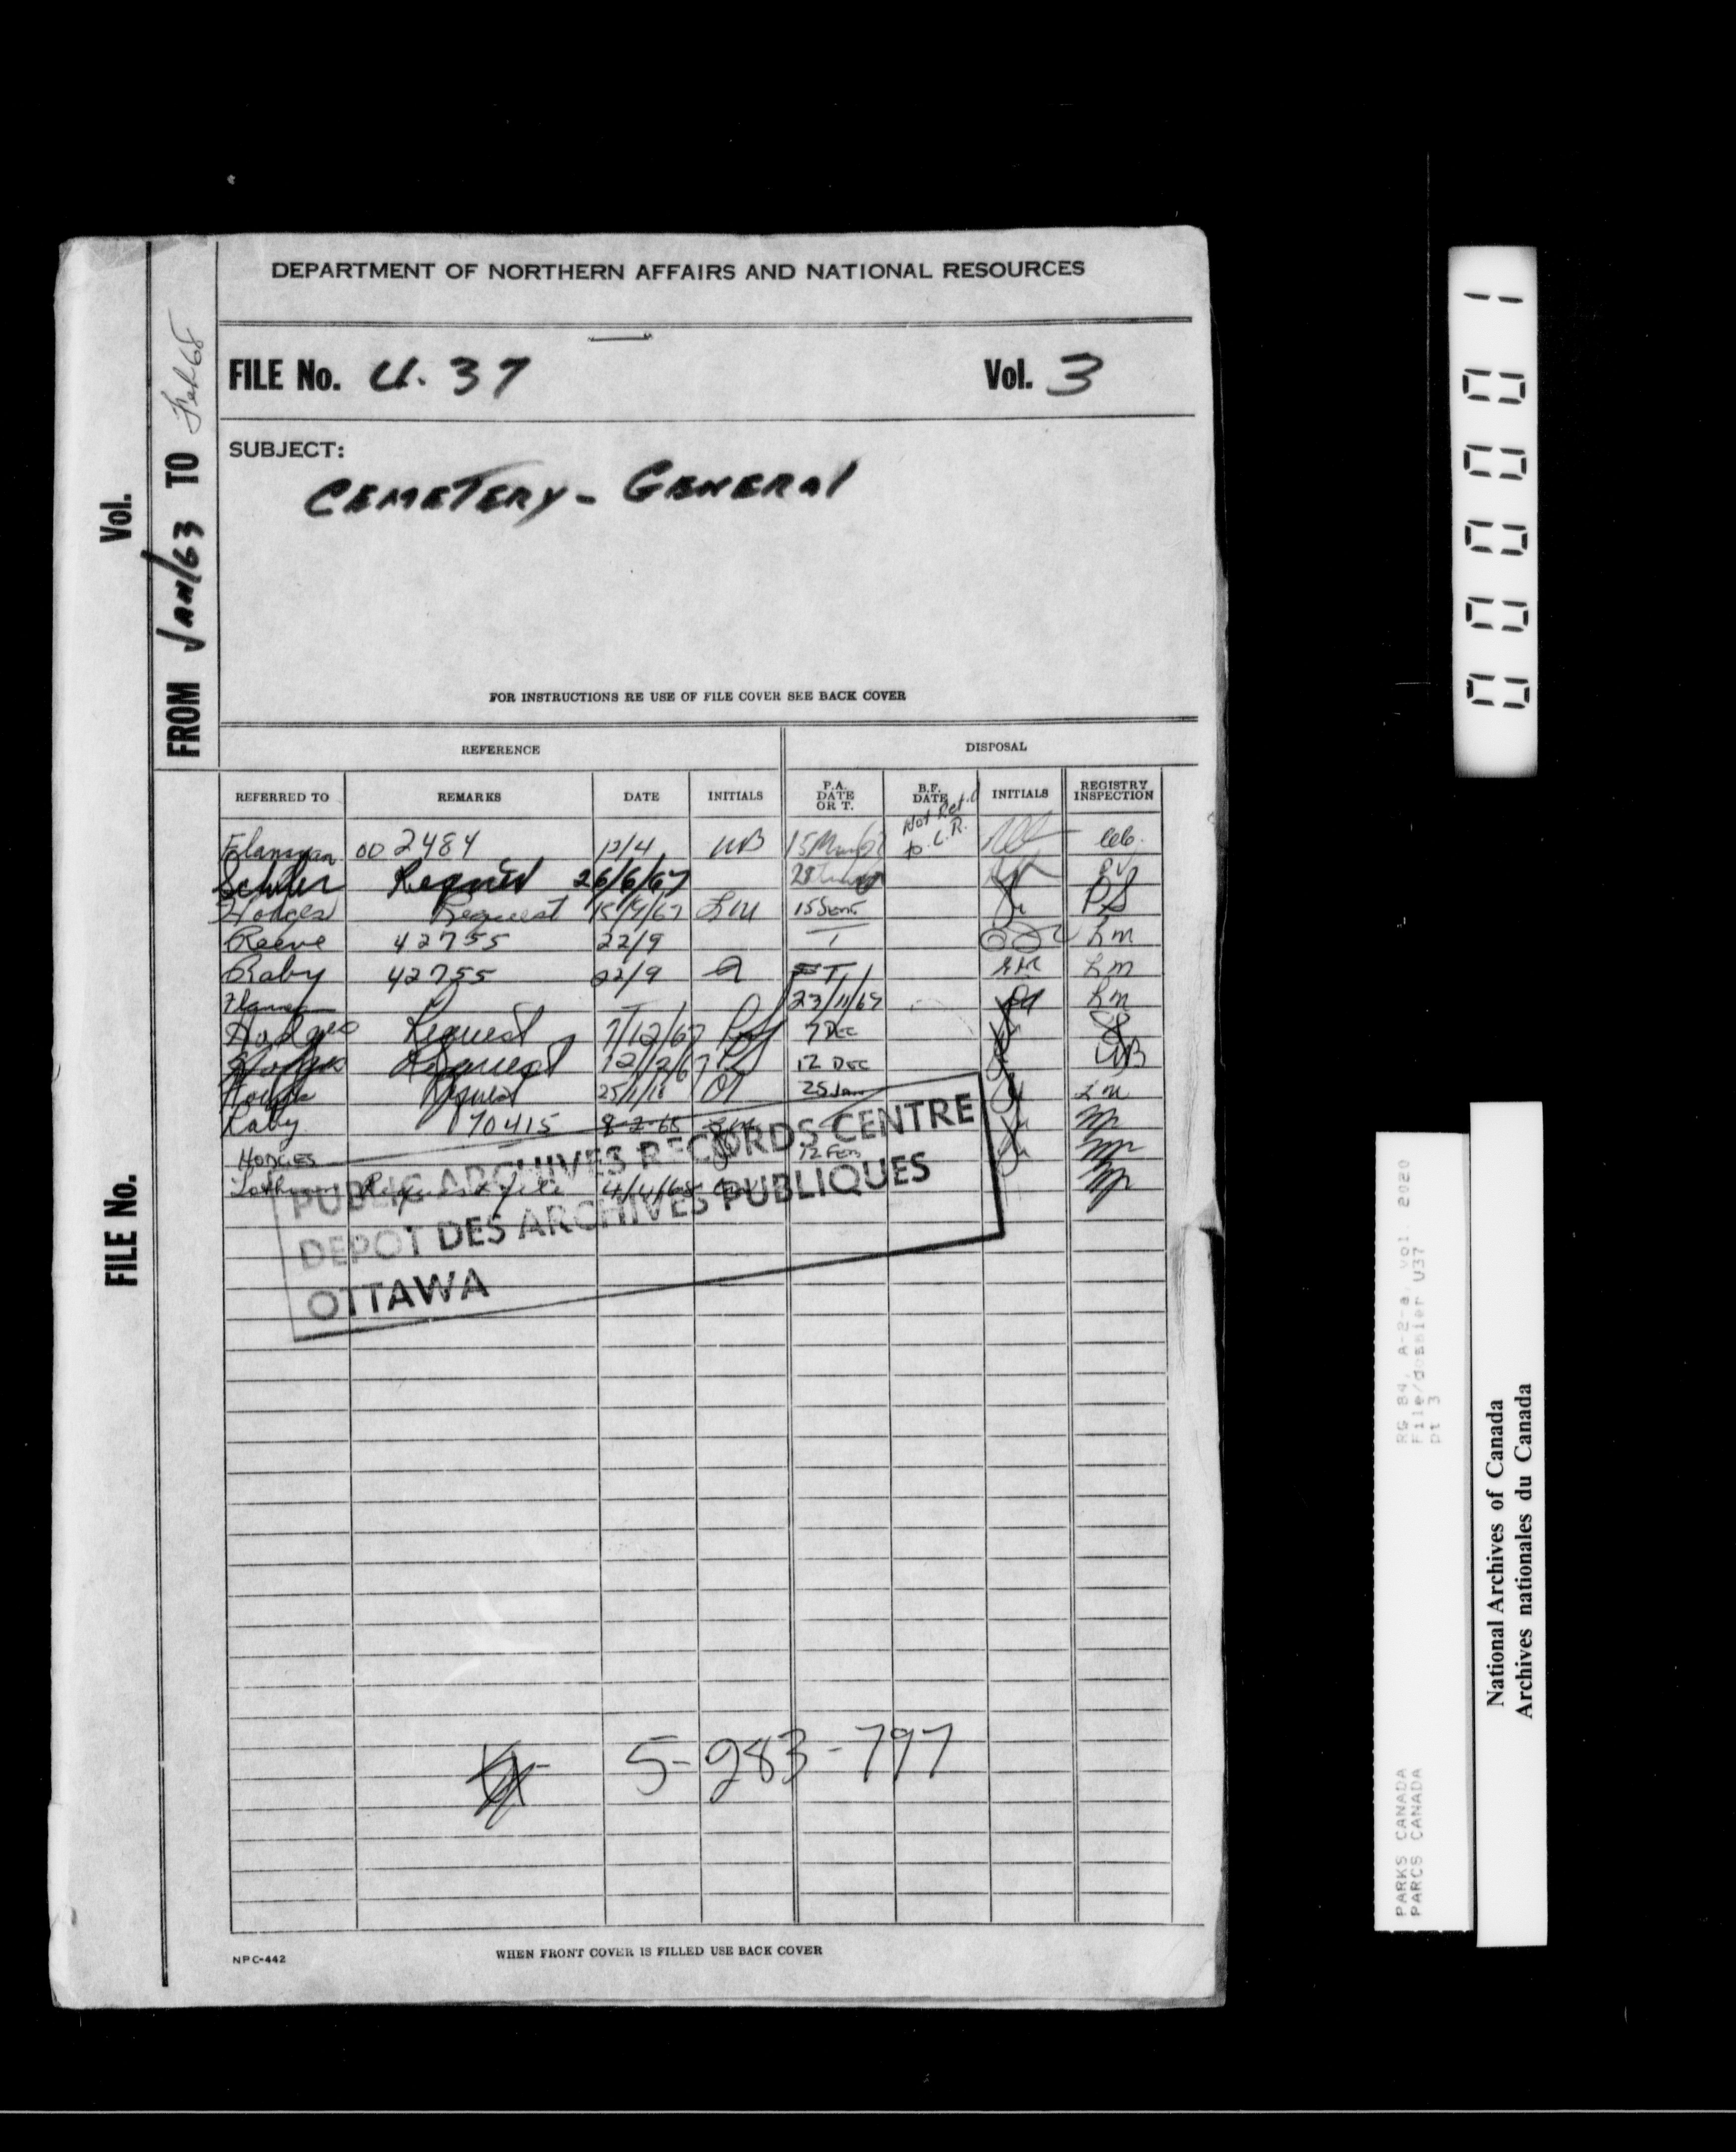 DEPARTMENT OF NORTHERN AFFAIRS AND NATIONAL RESOURCES
FILE No. U. 37 Vol. 3
SUBJECT:
CEMETERY - GENERAL
FOR INSTRUCTIONS RE USE OF FILE COVER SEE BACK COVER
Vol.
FILE No.
FROM Jan/63 TO Feb 68
REFERENCE DISPOSAL
REFERRED TO REMARKS DATE INITIALS P.A. DATE OR T. B.F. DATE INITIALS REGISTRY INSPECTION
Not Ret.d to C.R.
Flanagan 00 2484 12/4 WB
Request 26/6/67
Hodges Request 15/9/67 LM 15 Sept PS
Reeve 42755 22/9 Lm
Raby 42755 22/9 Lm
23/11/67 Lm
Hodges Request 7/12/67 PS 7 DEC
Hodges Request 12/12/67 PS 12 DEC WB
Request 25 Jan Lm
Raby 70415 8-2-68
HODGES 12 FEB
Request file 4/4/68
PUBLIC ARCHIVES RECORDS CENTRE
DEPOT DES ARCHIVES PUBLIQUES
OTTAWA
5-283-797
NPC-442
WHEN FRONT COVER IS FILLED USE BACK COVER
000001
RG 84, A-2-a, vol. 2020
File/dossier U37
pt 3
PARKS CANADA
PARCS CANADA
National Archives of Canada
Archives nationales du Canada